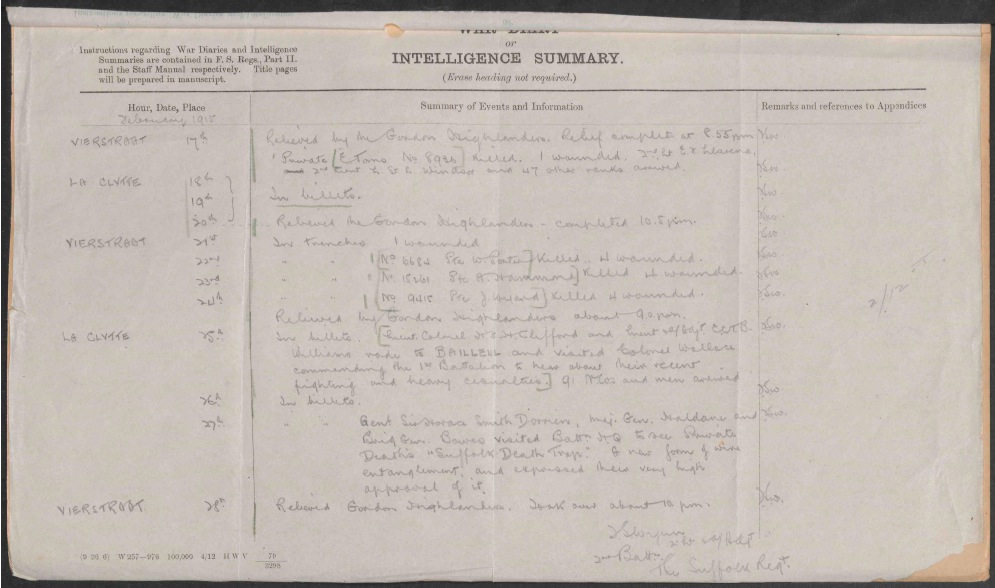 WAR DIARY
or
INTELLIGENCE SUMMARY.
(Erase heading not required.)
Instructions regarding War Diaries and Intelligence
Summaries are contained in F. S. Regs., Part II.
and the Staff Manual respectively. Title pages
will be prepared in manuscript.
Hour, Date, Place
Summary of Events and Information
Remarks and references to Appendices
February 1915
VIERSTRAAT 17th Relieved by the Gordon Highlanders. Relief complete at 8.55pm
1 Private [E Tams No 8926] Killed. 1 wounded. 2nd Lt
2nd Lieut and 47 other ranks arrived.
LA CLYTTE 18th
19th In billets.
20th Relieved the Gordon Highlanders - completed 10.5pm.
VIERSTRAAT 21st In trenches 1 wounded
22nd " " 1 [No 6684 Pte W. ] Killed. 4 wounded.
23rd " " 1 [No 15261 Pte A. Hammond] Killed 4 wounded.
24th " " 1 [No 9415 Pte J. ] Killed 4 wounded.
Relieved by Gordon Highlanders about 9 p.m.
LA CLYTTE 25th In billets. [Lieut. Colonel Clifford and Lieut a/Adjt
Williams rode to BAILLEUL and visited Colonel Wallace
commanding the 1st Battalion to hear about their recent
fighting and heavy casualties.] 91 NCOs and men arrived
26th In billets.
27th " " Genl Sir Horace Smith Dorrien, Maj. Gen. Haldane and
Brig Gen. Bowes visited Battn HQ to see Private
Death's "Suffolk Death Trap". A new form of wire
entanglement, and expressed their very high
approval of it.
VIERSTRAAT. 28th Relieved Gordon Highlanders. Took over about 10 pm.
2/12
2 Lt a/Adjt
2nd Battn
The Suffolk Regt.
(9 26 6) W 257—976 100,000 4/12 H W V 79/3298